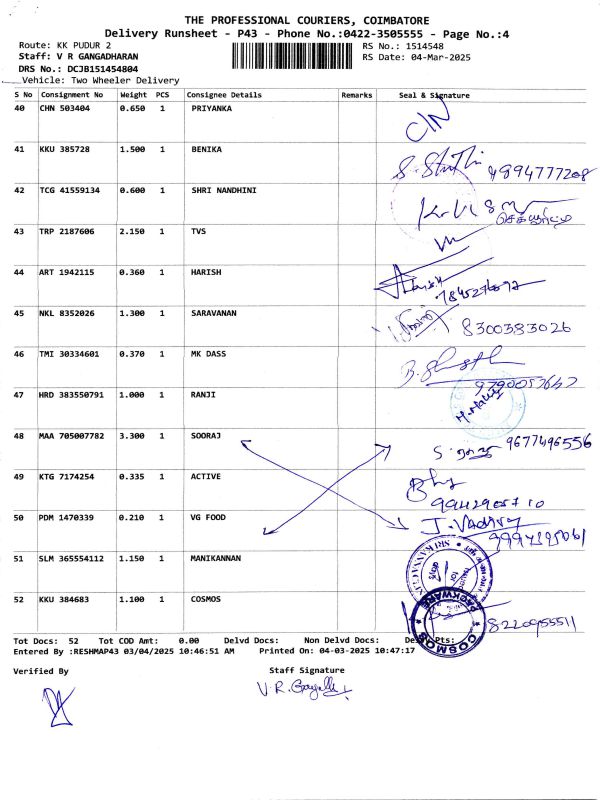 THE PROFESSIONAL COURIERS, COIMBATORE
Delivery Runsheet - P43 - Phone No.:0422-3505555 - Page No.:4
Route: KK PUDUR 2 RS No.: 1514548
Staff: V R GANGADHARAN RS Date: 04-Mar-2025
DRS No.: DCJB151454804
Vehicle: Two Wheeler Delivery
S No Consignment No Weight PCS Consignee Details Remarks Seal & Signature
40 CHN 503404 0.650 1 PRIYANKA
41 KKU 385728 1.500 1 BENIKA
42 TCG 41559134 0.600 1 SHRI NANDHINI
43 TRP 2187606 2.150 1 TVS
44 ART 1942115 0.360 1 HARISH
45 NKL 8352026 1.300 1 SARAVANAN
8300383026
46 TMI 30334601 0.370 1 MK DASS
47 HRD 383550791 1.000 1 RANJI
48 MAA 705007782 3.300 1 SOORAJ
9677496556
49 KTG 7174254 0.335 1 ACTIVE
50 PDM 1470339 0.210 1 VG FOOD
51 SLM 365554112 1.150 1 MANIKANNAN
52 KKU 384683 1.100 1 COSMOS
8220955511
COSMOS
Tot Docs: 52 Tot COD Amt: 0.00 Delvd Docs: Non Delvd Docs: Pts:
Entered By :RESHMAP43 03/04/2025 10:46:51 AM Printed On: 04-03-2025 10:47:17
Verified By Staff Signature